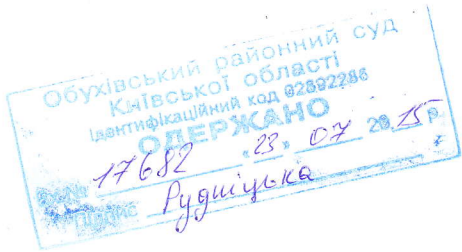 Обухівський районний суд
Київської області
Ідентифікаційний код 02892286
ОДЕРЖАНО
17682 „23" 07 2015 р.
Підпис Рудніцька